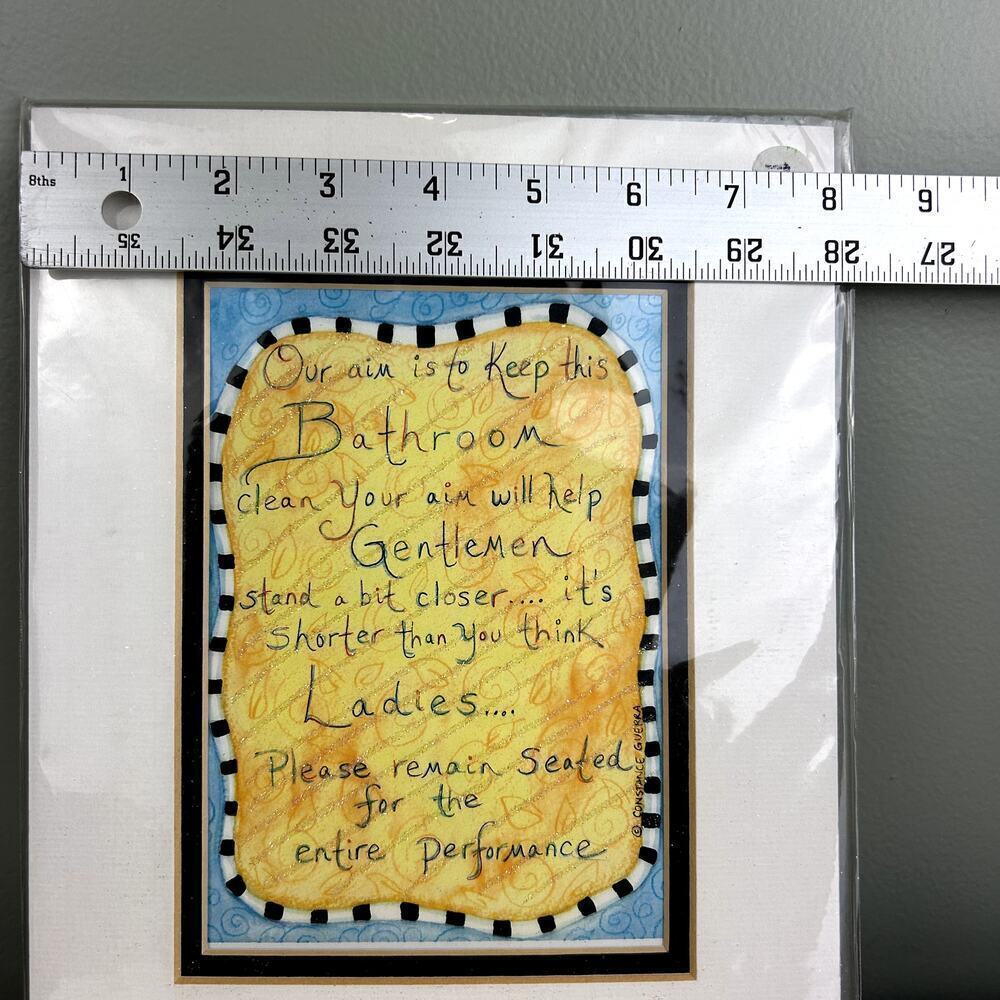 8ths 1 2 3 4 5 6 7 8 9
35 34 33 32 31 30 29 28 27
Our aim is to Keep this
Bathroom
clean Your aim will help
Gentlemen
stand a bit closer.... it's
shorter than you think
Ladies....
Please remain Seated
for the
entire performance
© CONSTANCE GUERRA